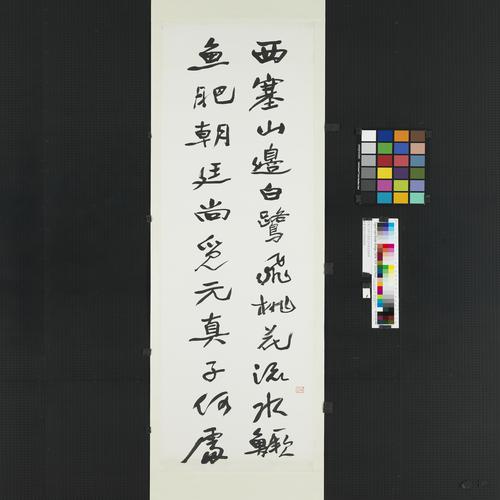 西塞山邊白鷺飛桃花流水鱖
魚肥朝廷尚覓元真子何處